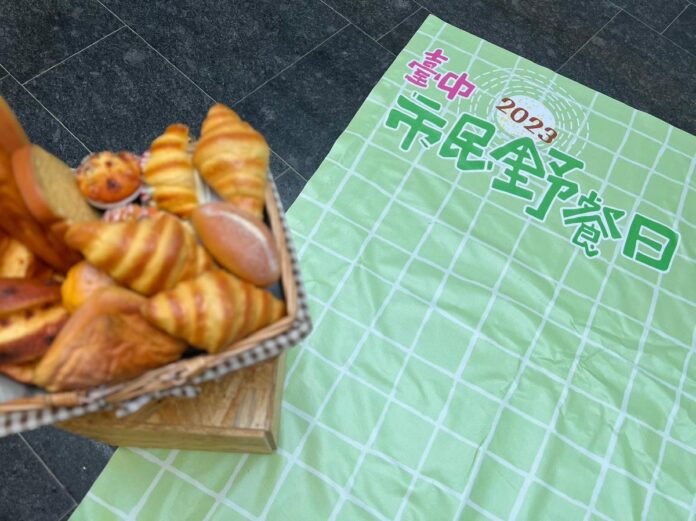 臺中
2023
市民野餐日